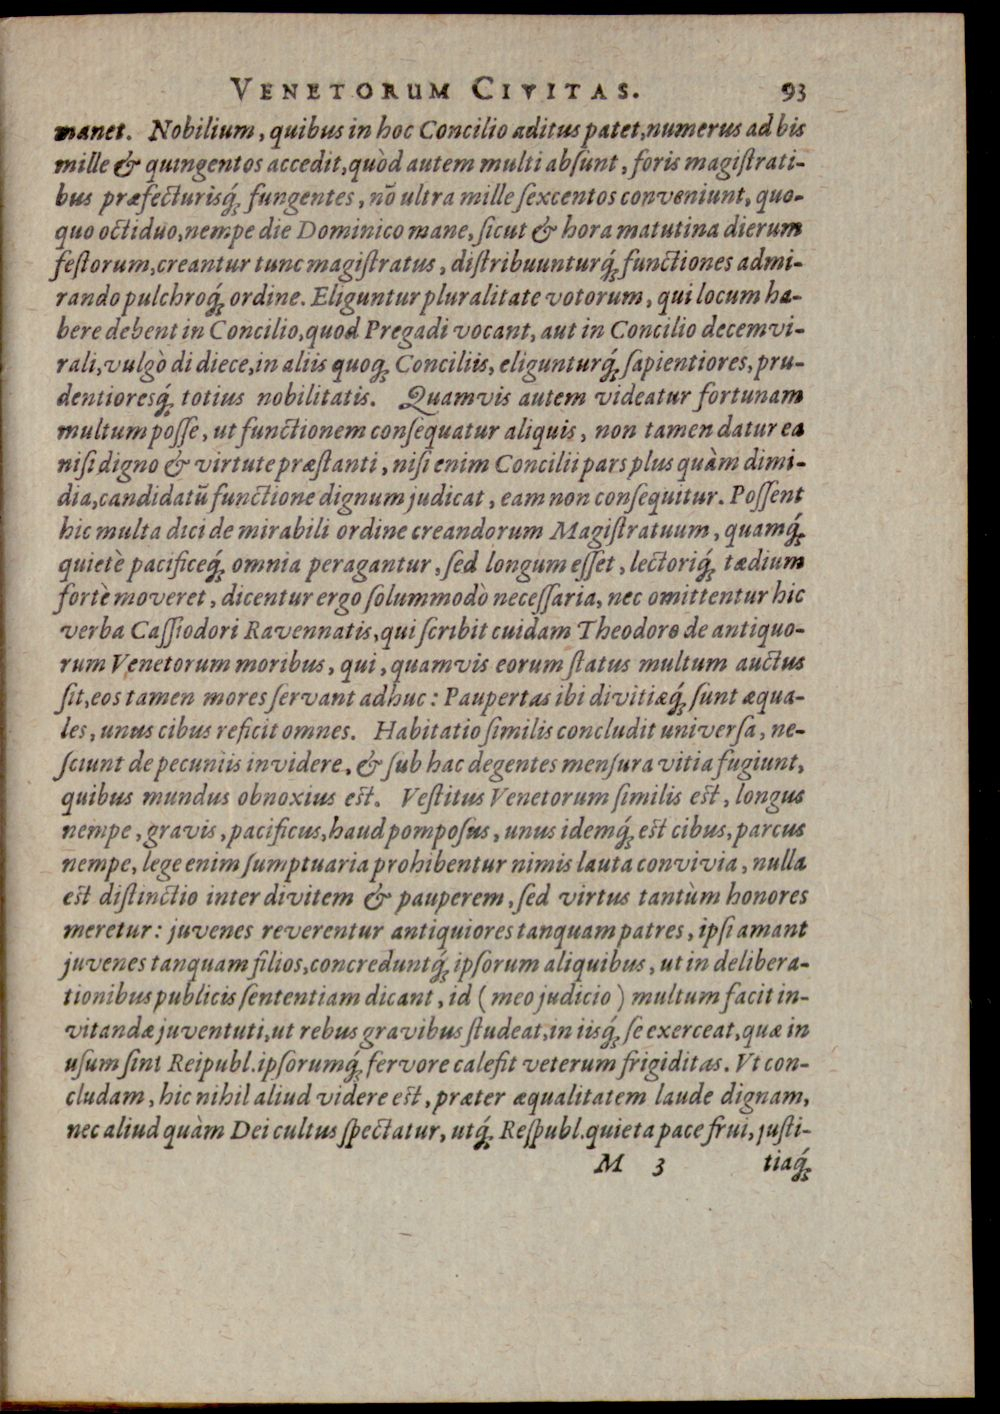 VENETORUM CIVITAS. 93
manet. Nobilium, quibus in hoc Concilio aditus patet, numerus ad bis
mille & quingentos accedit, quòd autem multi absunt, foris magistrati-
bus præfecturisq́; fungentes, nõ ultra mille sexcentos conveniunt, quo-
quo octiduo, nempe die Dominico mane, sicut & hora matutina dierum
festorum, creantur tunc magistratus, distribuunturq́; functiones admi-
rando pulchroq́; ordine. Eliguntur pluralitate votorum, qui locum ha-
bere debent in Concilio, quod Pregadi vocant, aut in Concilio decemvi-
rali, vulgò di diece, in aliis quoq; Conciliis, eligunturq́; sapientiores, pru-
dentioresq́; totius nobilitatis. Quamvis autem videatur fortunam
multum posse, ut functionem consequatur aliquis, non tamen datur ea
nisi digno & virtute præstanti, nisi enim Concilii pars plus quàm dimi-
dia, candidatũ functione dignum judicat, eam non consequitur. Possent
hic multa dici de mirabili ordine creandorum Magistratuum, quamq́;
quietè pacificeq́; omnia peragantur, sed longum esset, lectoriq́; tædium
fortè moveret, dicentur ergo solummodò necessaria, nec omittentur hic
verba Cassiodori Ravennatis, qui scribit cuidam Theodoro de antiquo-
rum Venetorum moribus, qui, quamvis eorum status multum auctus
sit, eos tamen mores servant adhuc: Paupertas ibi divitiæq́; sunt æqua-
les, unus cibus reficit omnes. Habitatio similis concludit universa, ne-
sciunt de pecuniis invidere, & sub hac degentes mensura vitia fugiunt,
quibus mundus obnoxius est. Vestitus Venetorum similis est, longus
nempe, gravis, pacificus, haud pomposus, unus idemq́; est cibus, parcus
nempe, lege enim sumptuaria prohibentur nimis lauta convivia, nulla
est distinctio inter divitem & pauperem, sed virtus tantùm honores
meretur: juvenes reverentur antiquiores tanquam patres, ipsi amant
juvenes tanquam filios, concreduntq́; ipsorum aliquibus, ut in delibera-
tionibus publicis sententiam dicant, id (meo judicio) multum facit in-
vitandæ juventuti, ut rebus gravibus studeat, in iisq́; se exerceat, quæ in
usum sint Reipubl. ipsorumq́; fervore calefit veterum frigiditas. Vt con-
cludam, hic nihil aliud videre est, præter æqualitatem laude dignam,
nec aliud quàm Dei cultus spectatur, utq́; Respubl. quieta pace frui, justi-
M 3 tiaq́;